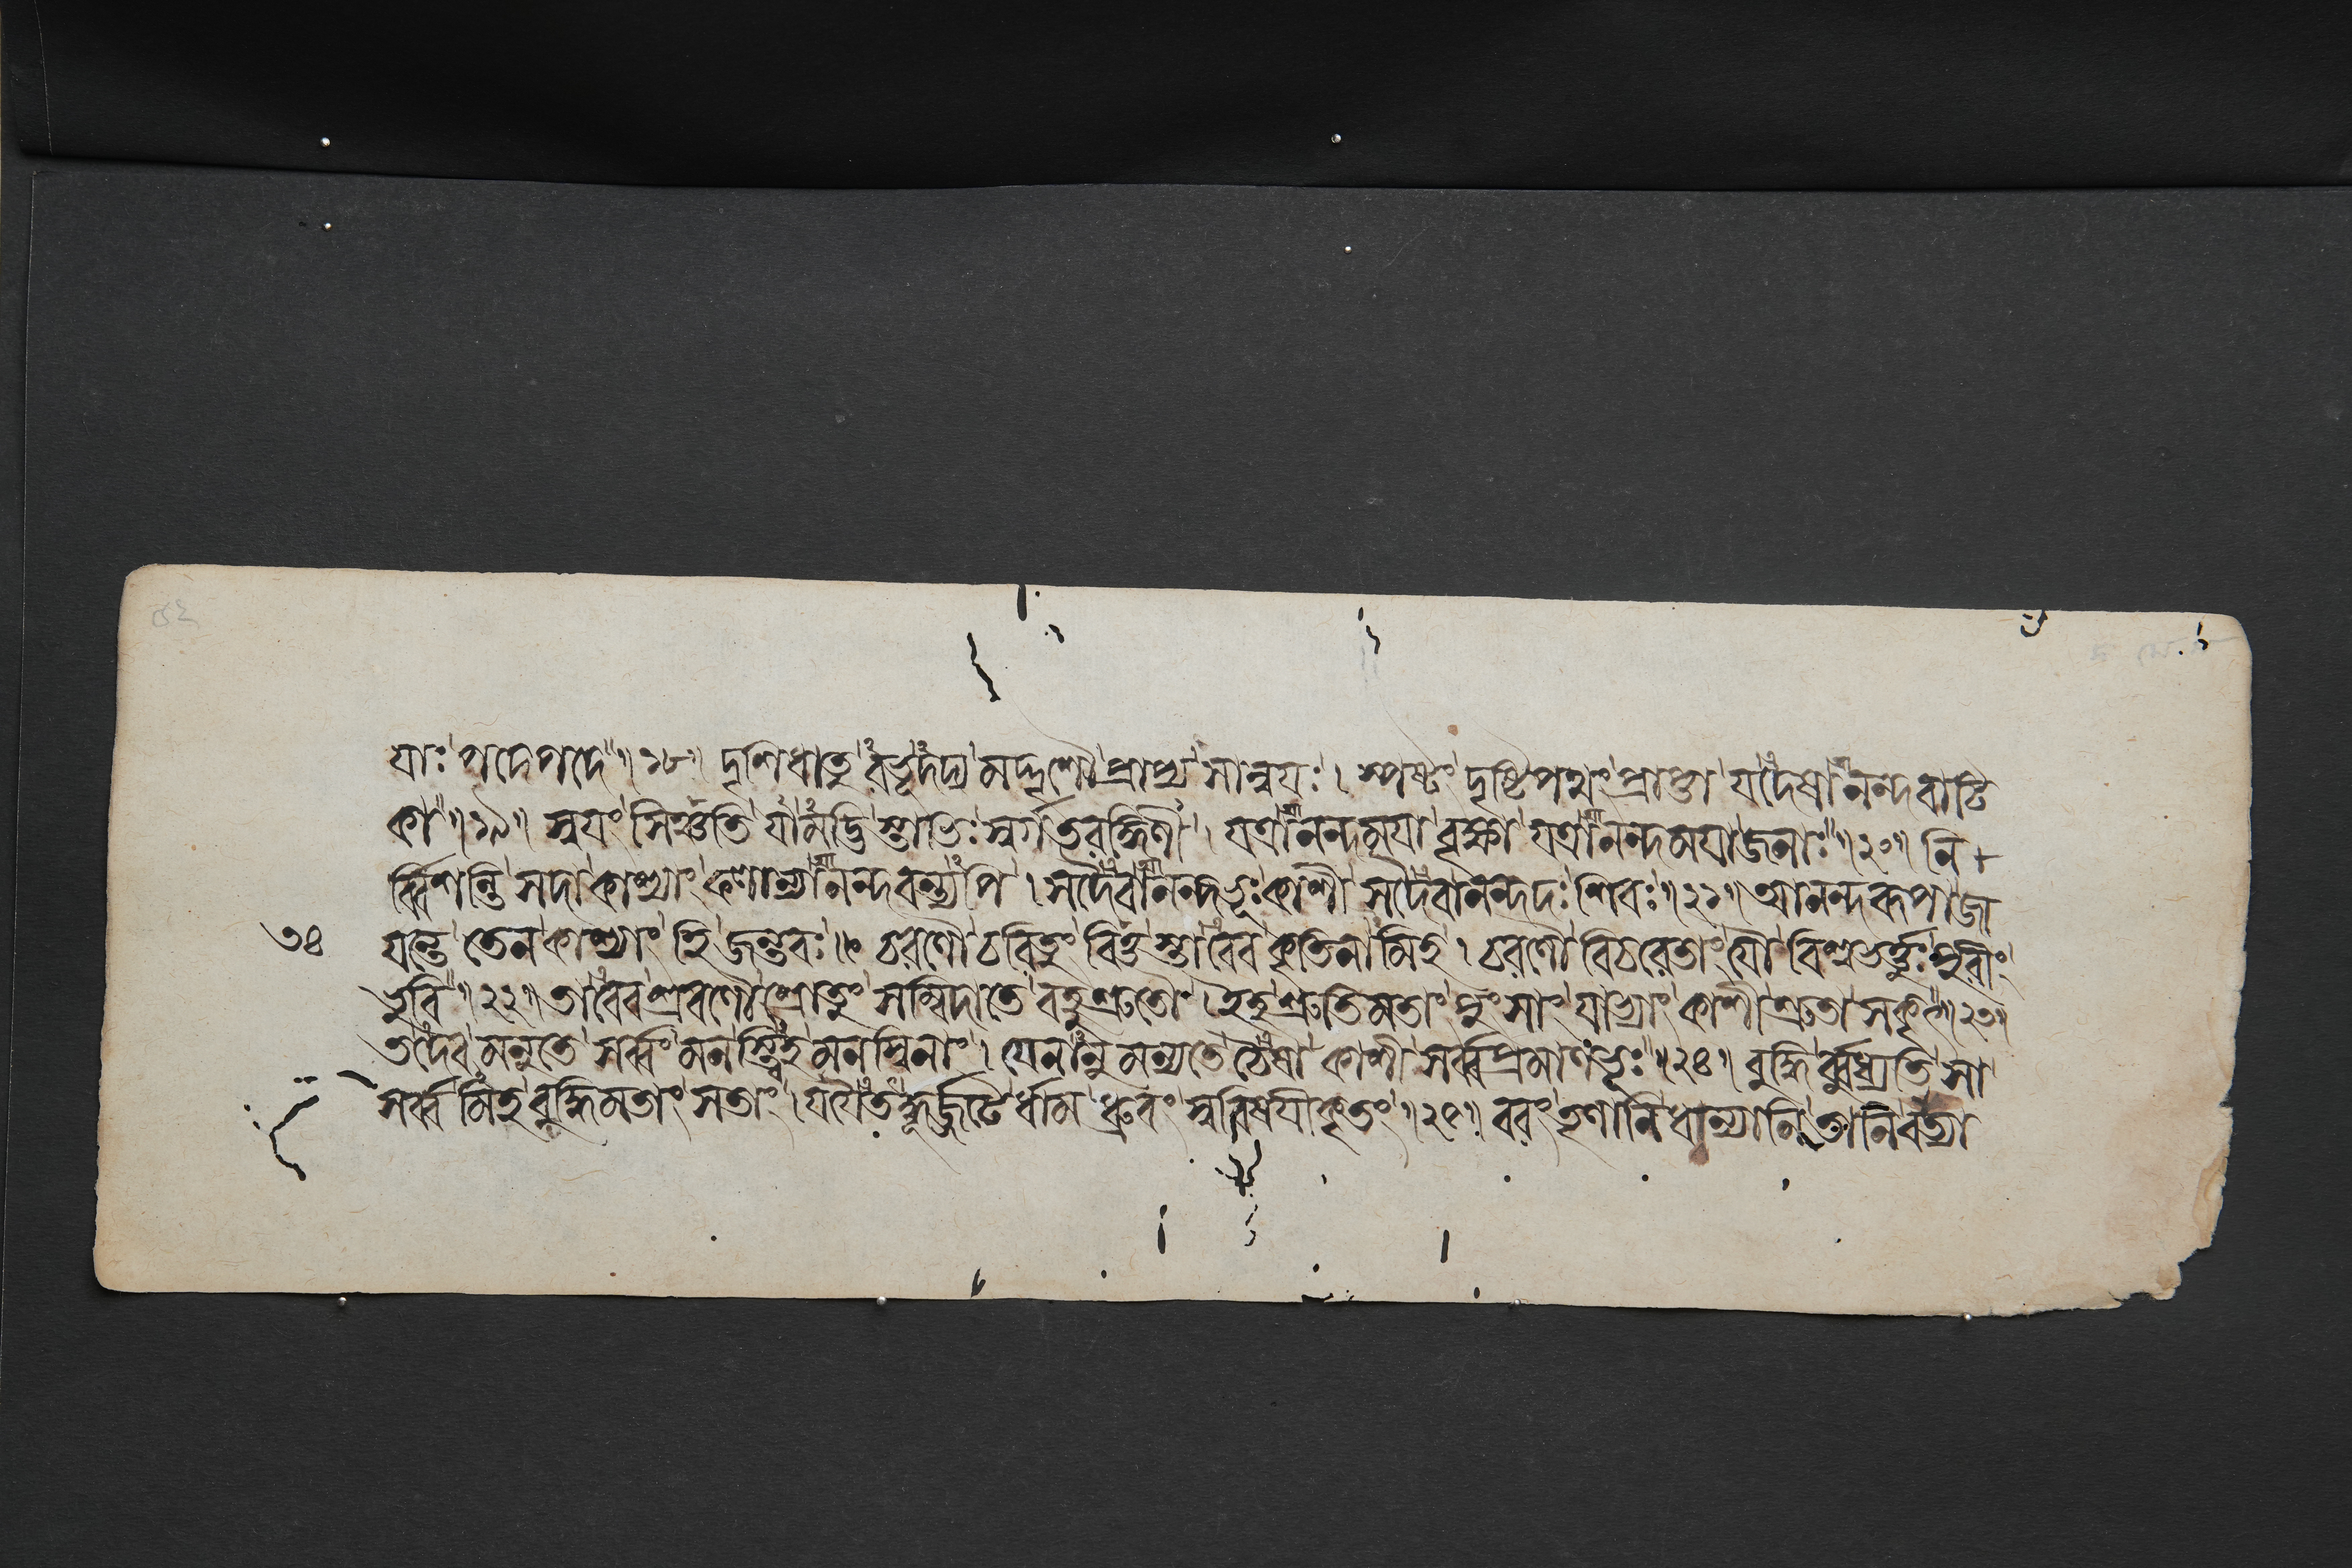 যাঃ পদেপদে ॥ ১৮ ॥ দৃশিধাতু রভূদদ্য মদ্দৃশৌ প্রাপ্য সান্বয়ঃ । স্পষ্টং দৃষ্টিপথং প্রাপ্তা যদেষানন্দবাটি
কা ॥ ১৯ ॥ স্বয়ং সিঞ্চতি যামদ্ভি স্তাভিঃ স্বর্গতরঙ্গিণী । যত্রানন্দময়া বৃক্ষা যত্রানন্দময়াজনাঃ ॥ ২০ ॥ নি
র্ব্বিশন্তি সদা কাশ্যাং ফলান্যানন্দবন্ত্যপি । সদৈবানন্দভূঃ কাশী সদৈবানন্দদঃ শিবঃ ॥ ২১ ॥ আনন্দরূপা জা
৩৪ যন্তে তেন কাশ্যাং হি জন্তবঃ ॥ চরণৌ চরিতুং বিত্ত স্তাবেব কৃতিনামিহ । চরণৌ বিচরেতাং যৌ বিশ্বভর্ত্তুঃ পুরীং
ভুবি ॥ ২২ ॥ তাবেব শ্রবণৌ শ্রোতুং সম্বিদাতে বহুশ্রুতৌ । ইহ শ্রুতিমতাং পুংসাং যাভ্যাং কাশী শ্রুতা সকৃৎ ॥ ২৩ ॥
তদেব মনুতে সর্ব্বং মনস্ত্বিহ মনস্বিনাং । যেনানুমন্যতে চৈষা কাশী সর্ব্বপ্রমাণভূঃ ॥ ২৪ ॥ বুদ্ধি র্ব্বুধ্যতি সা
সর্ব্ব মিহ বুদ্ধিমতাং সতাং । যয়ৈতদ্ধূর্জ্জটে র্ধাম ধ্রুবং স্ববিষয়ীকৃতং ॥ ২৫ ॥ বরং তৃণানি ধান্যানি তানি বাত্যা